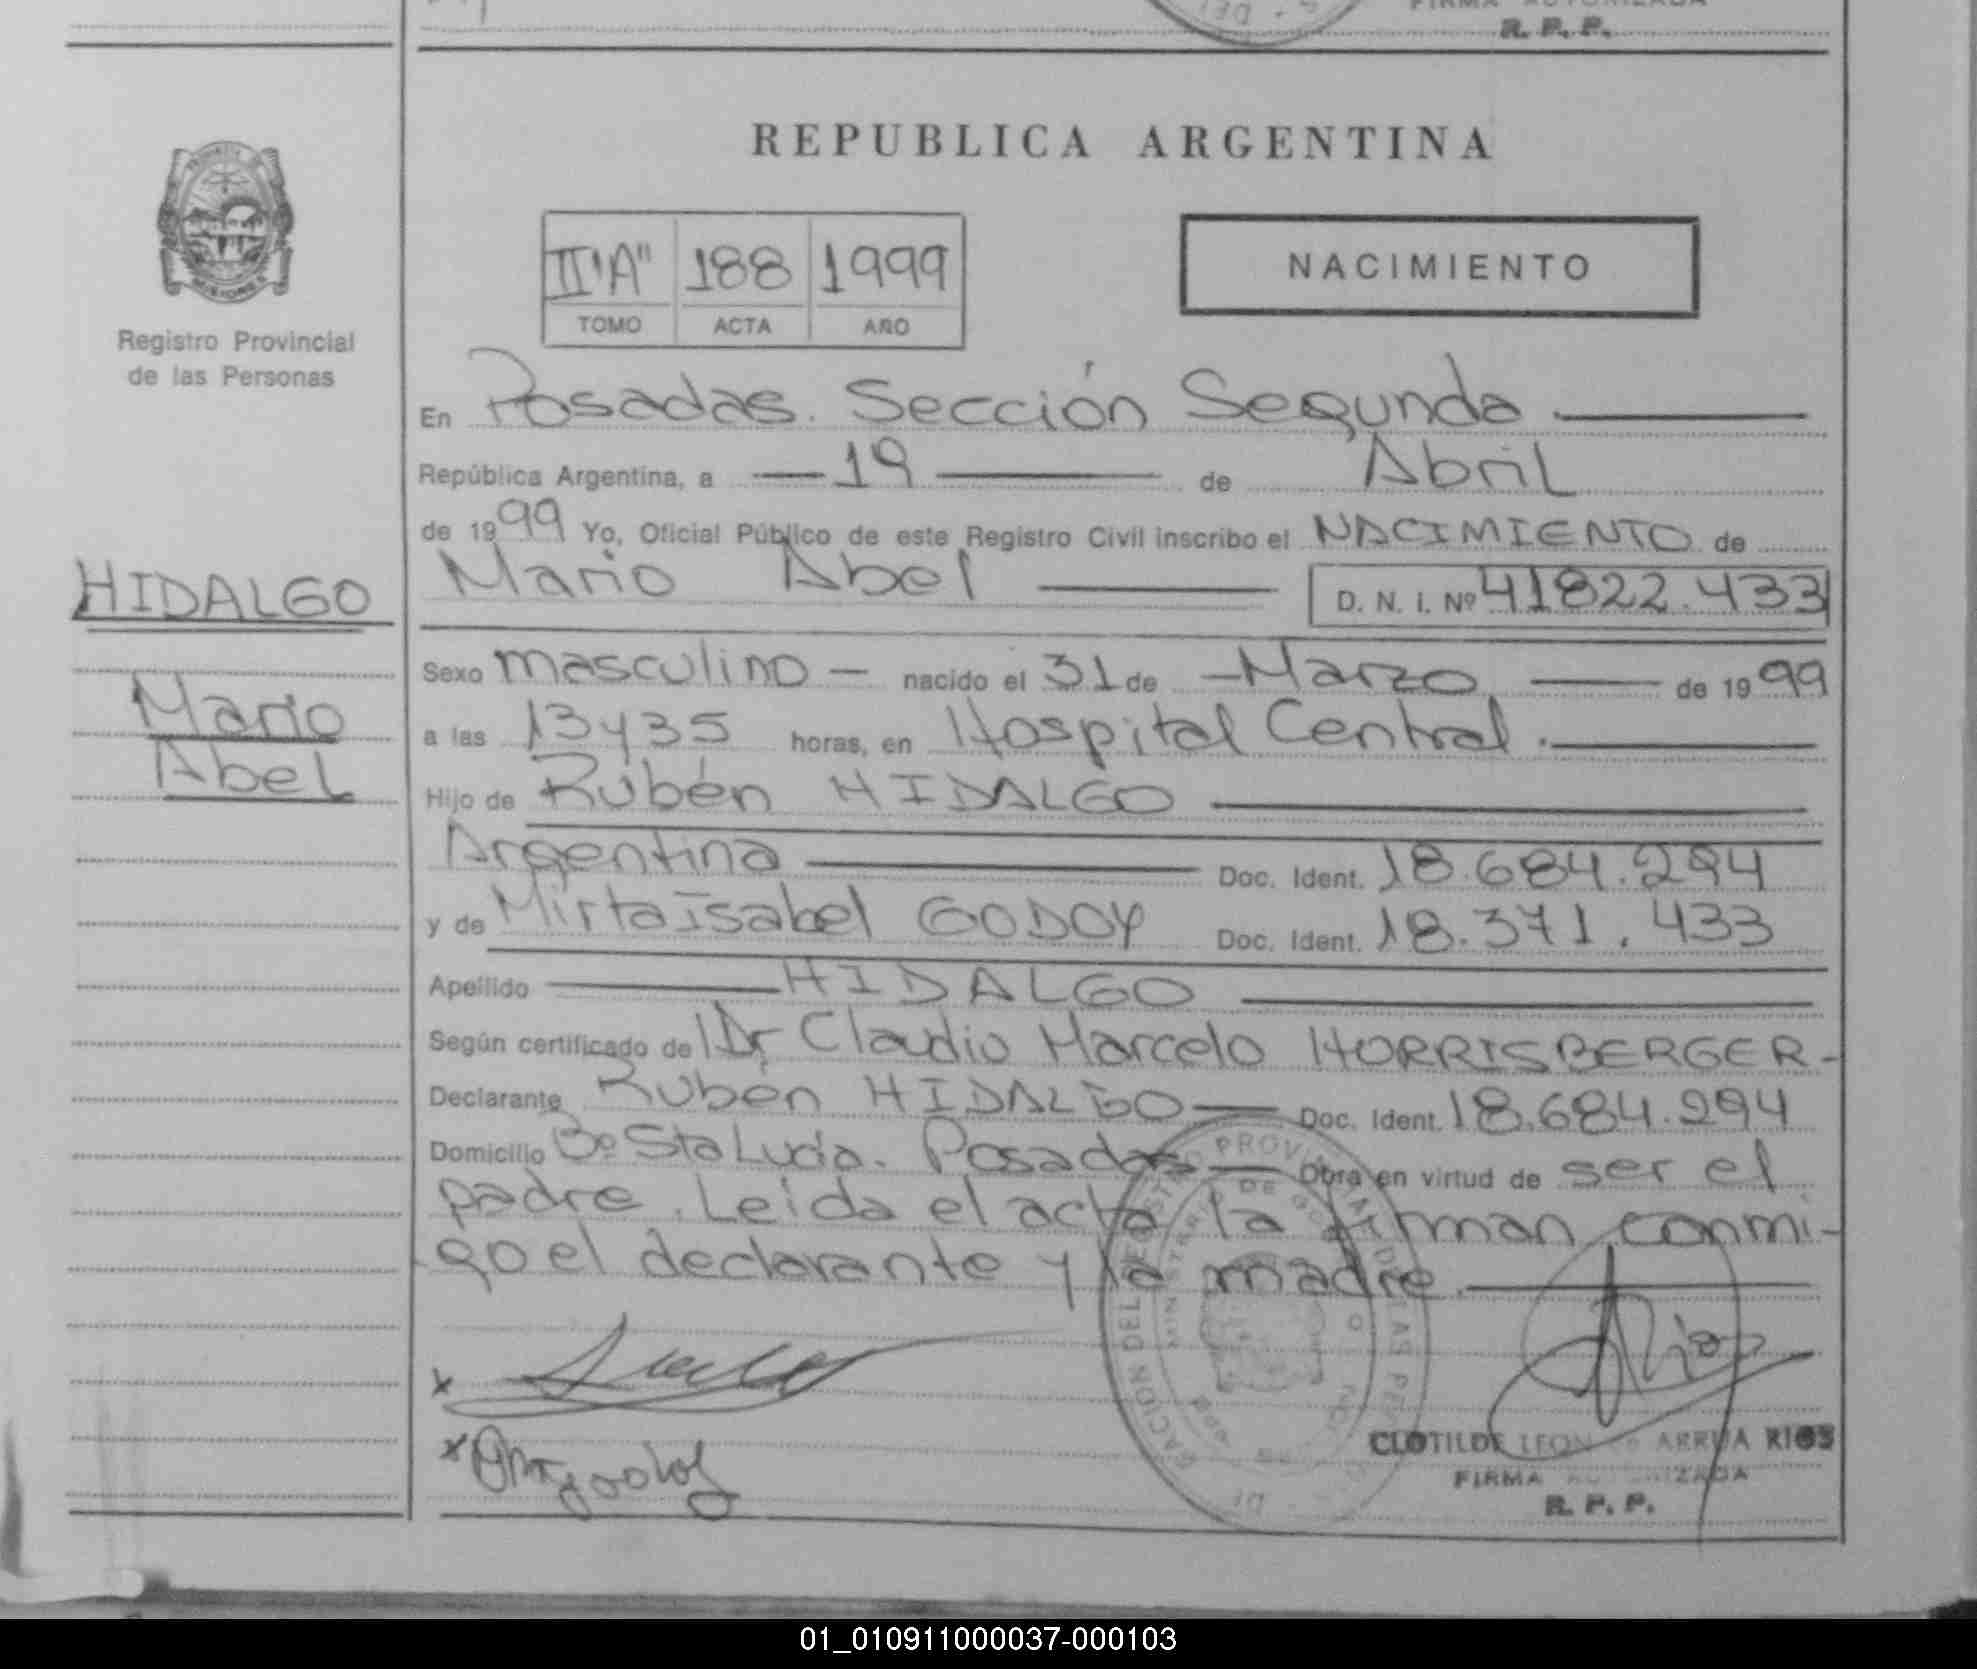 R. P. P.
REPUBLICA ARGENTINA
II "A" 188 1999
TOMO ACTA AÑO
NACIMIENTO
Registro Provincial
de las Personas
En Posadas. Sección Segunda.
República Argentina, a 19 de Abril
de 1999 Yo, Oficial Público de este Registro Civil inscribo el NACIMIENTO de
Mario Abel D. N. I. Nº 41822.433
HIDALGO
Mario
Abel
Sexo masculino — nacido el 31 de — Marzo — de 1999
a las 13 y 35 horas, en Hospital Central.
Hijo de Rubén HIDALGO
Argentina Doc. Ident. 18.684.294
y de Mirta Isabel GODOY Doc. Ident. 18.371.433
Apellido HIDALGO
Según certificado de Dr Claudio Marcelo HORRISBERGER-
Declarante Rubén HIDALGO — Doc. Ident. 18.684.294
Domicilio Bº Sta Lucía. Posadas — Obra en virtud de ser el
padre. Leída el acta la firman conmi-
go el declarante y la madre.
x
x
CLOTILDE LEON de ARRUA RIOS
FIRMA AUTORIZADA
R. P. P.
01_010911000037-000103